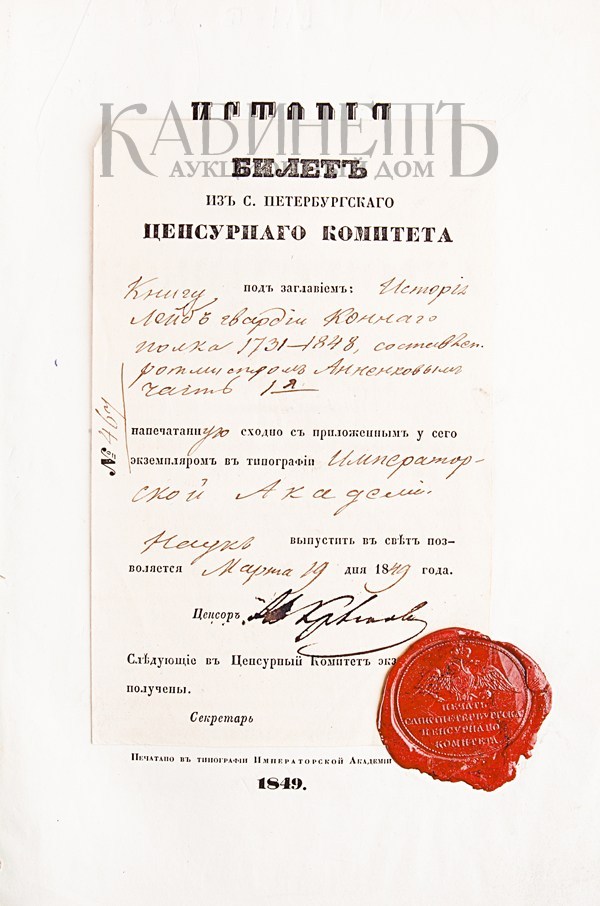 ИСТОРІЯ
КАБИНЕТЪ
АУКЦИОННЫЙ ДОМ
БИЛЕТЪ
ИЗЪ С. ПЕТЕРБУРГСКАГО
ЦЕНСУРНАГО КОМИТЕТА
Книгу подъ заглавіемъ: Исторія
Лейбъ гвардіи Коннаго
полка 1731–1848, составлен.
ротмистромъ Анненковымъ
часть 1я
№ 467
напечатанную сходно съ приложеннымъ у сего
экземпляромъ въ типографіи Император-
ской Академіи
Наукъ выпустить въ свѣтъ поз-
воляется Марта 19 дня 1849 года.
Ценсоръ
Слѣдующіе въ Ценсурный Комитетъ экз
получены.
Секретарь
ПЕЧАТЬ
САНКТПЕТЕРБУРГСКА
ЦЕНСУРНАГО
КОМИТЕТА
Печатано въ типографіи Императорской Академіи
1849.